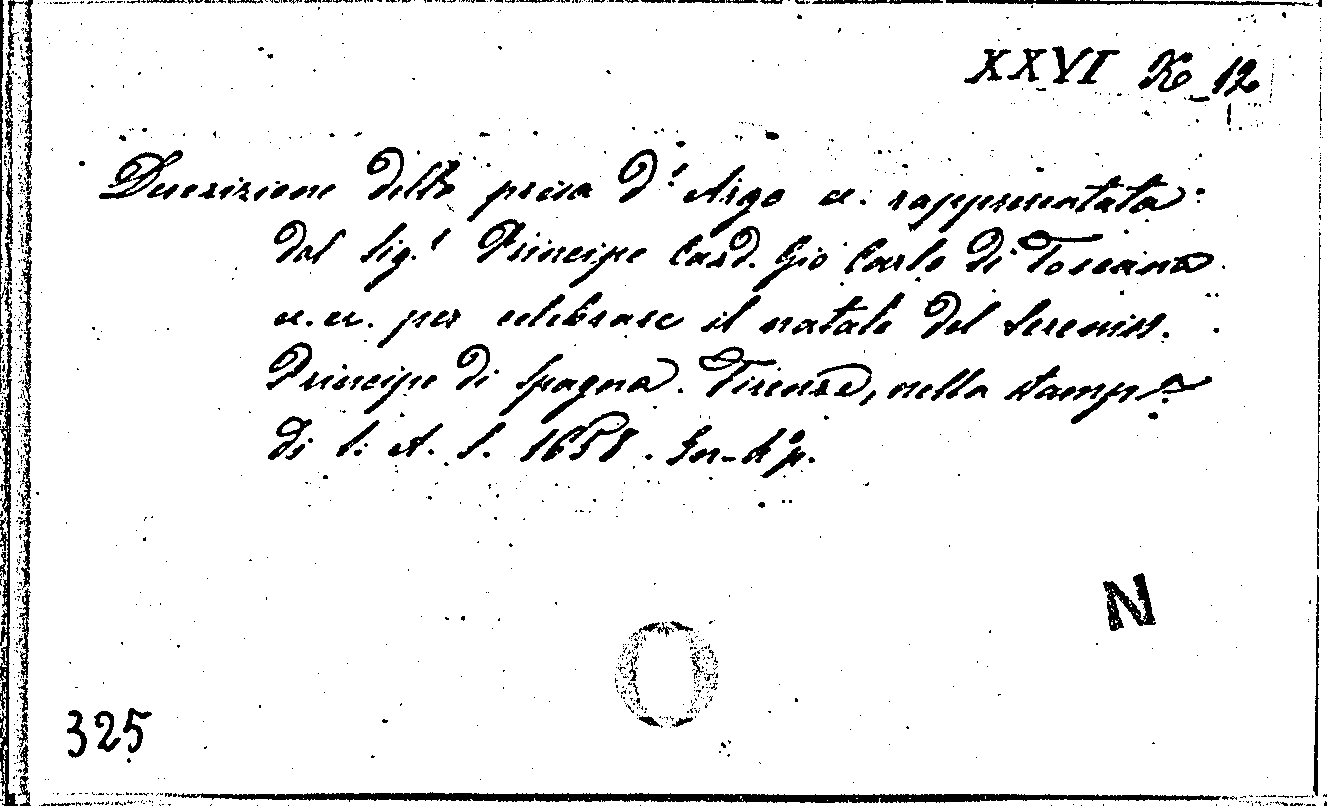 XXVI K_12
Descrizione della presa d'Argo ec. rappresentata
dal Sig.r Principe Card. Gio Carlo di Toscana
ec. ec. per celebrare il natale del Sereniss.
Principe di Spagna. Firenze, nella stamp.a
di S. A. S. 1658. In-4º p.
N
325